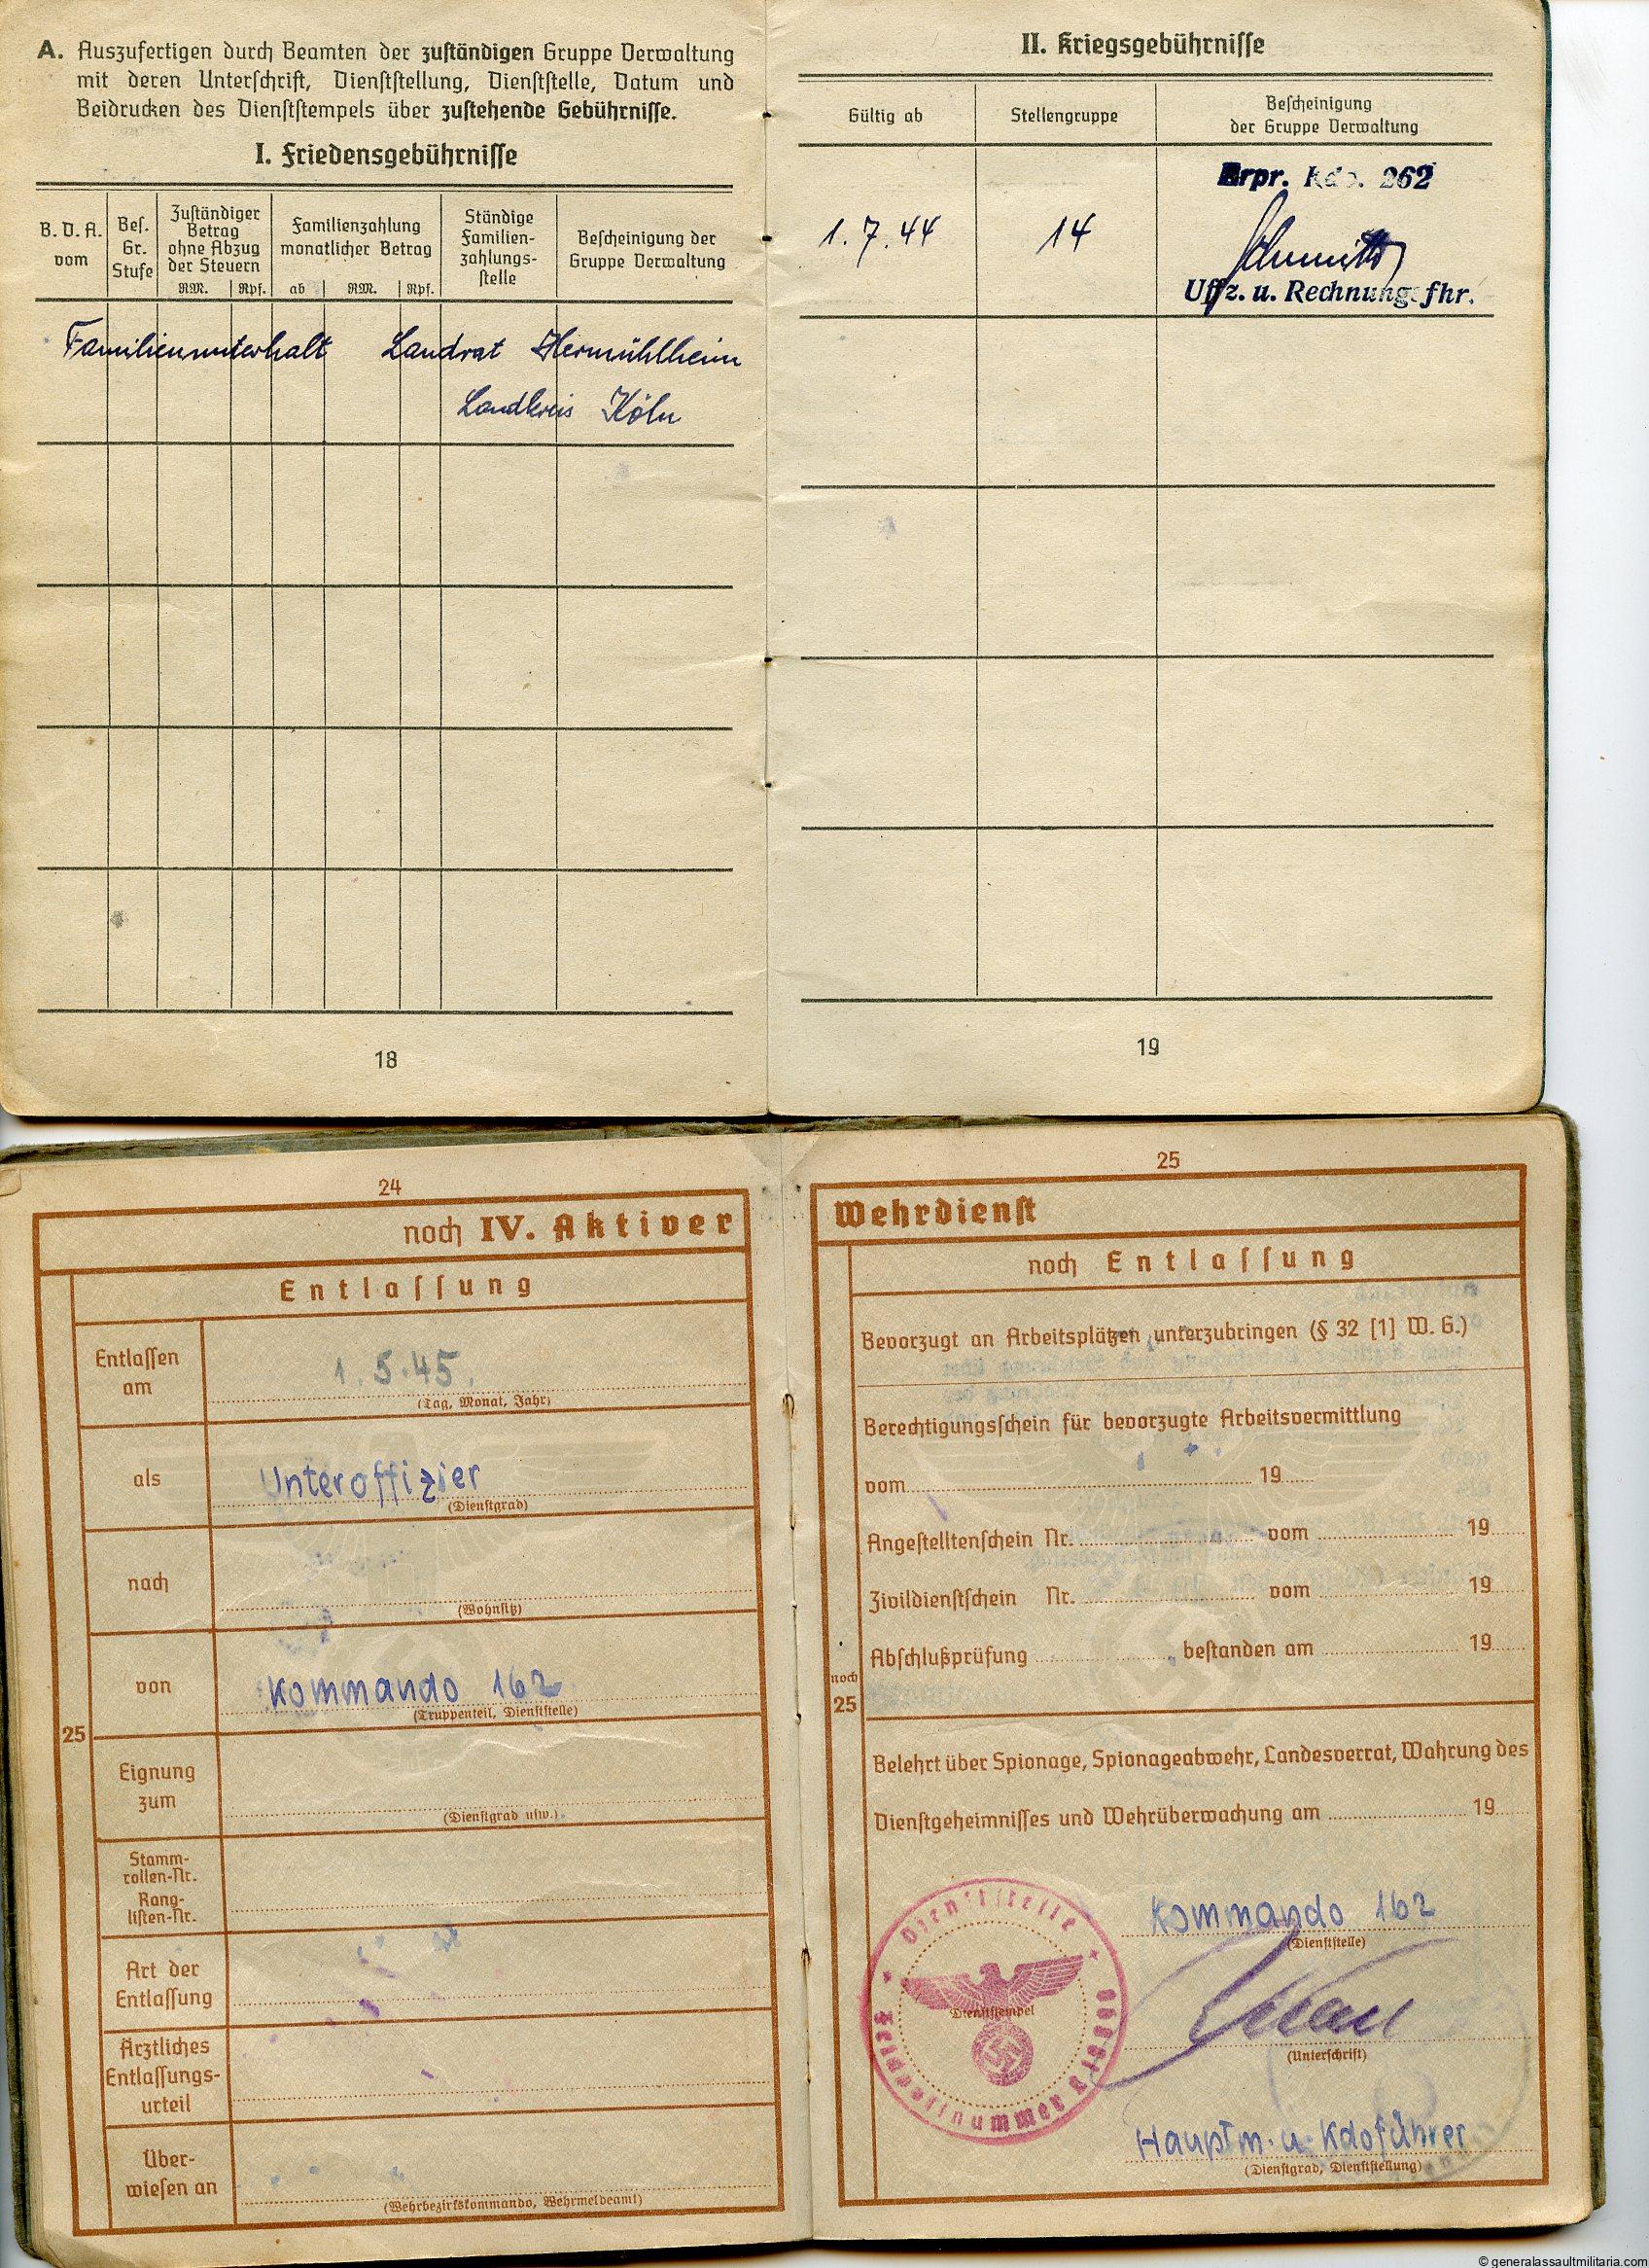 A. Auszufertigen durch Beamten der zuständigen Gruppe Verwaltung
mit deren Unterschrift, Dienststellung, Dienststelle, Datum und
Beidrucken des Dienststempels über zustehende Gebührnisse.
I. Friedensgebührnisse
B. D. A.
vom
Bes.
Gr.
Stufe
Zuständiger
Betrag
ohne Abzug
der Steuern
RM.
Rpf.
Familienzahlung
monatlicher Betrag
ab
RM.
Rpf.
Ständige
Familien-
zahlungs-
stelle
Bescheinigung der
Gruppe Verwaltung
Familienunterhalt Landrat Hermühlheim
Landkreis Köln
18
II. Kriegsgebührnisse
Gültig ab
Stellengruppe
Bescheinigung
der Gruppe Verwaltung
Erpr. Kdo. 262
1.7.44
14
Schmitt
Uffz. u. Rechnungsfhr.
19
24
noch IV. Aktiver
Entlassung
Entlassen
am
1.5.45.
(Tag, Monat, Jahr)
als
Unteroffizier
(Dienstgrad)
nach
(Wohnsitz)
von
Kommando 162
(Truppenteil, Dienststelle)
25
Eignung
zum
(Dienstgrad usw.)
Stamm-
rollen-Nr.
Rang-
listen-Nr.
Art der
Entlassung
Ärztliches
Entlassungs-
urteil
Über-
wiesen an
(Wehrbezirkskommando, Wehrmeldeamt)
25
Wehrdienst
noch Entlassung
Bevorzugt an Arbeitsplätzen unterzubringen (§ 32 [1] W. G.)
Berechtigungsschein für bevorzugte Arbeitsvermittlung
vom 19
Angestelltenschein Nr. vom 19
Zivildienstschein Nr. vom 19
Abschlußprüfung bestanden am 19
noch
25
Belehrt über Spionage, Spionageabwehr, Landesverrat, Wahrung des
Dienstgeheimnisses und Wehrüberwachung am 19
Dienststelle
Feldpostnummer
Dienststempel
Kommando 162
(Dienststelle)
(Unterschrift)
Hauptm. u. Kdoführer
(Dienstgrad, Dienststellung)
© generalassaultmilitaria.com